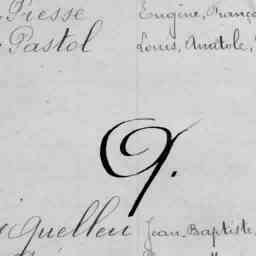 Presse Eugène, Franço
Pastol Louis, Anatole,
Q.
Quelleu Jean, Baptiste,